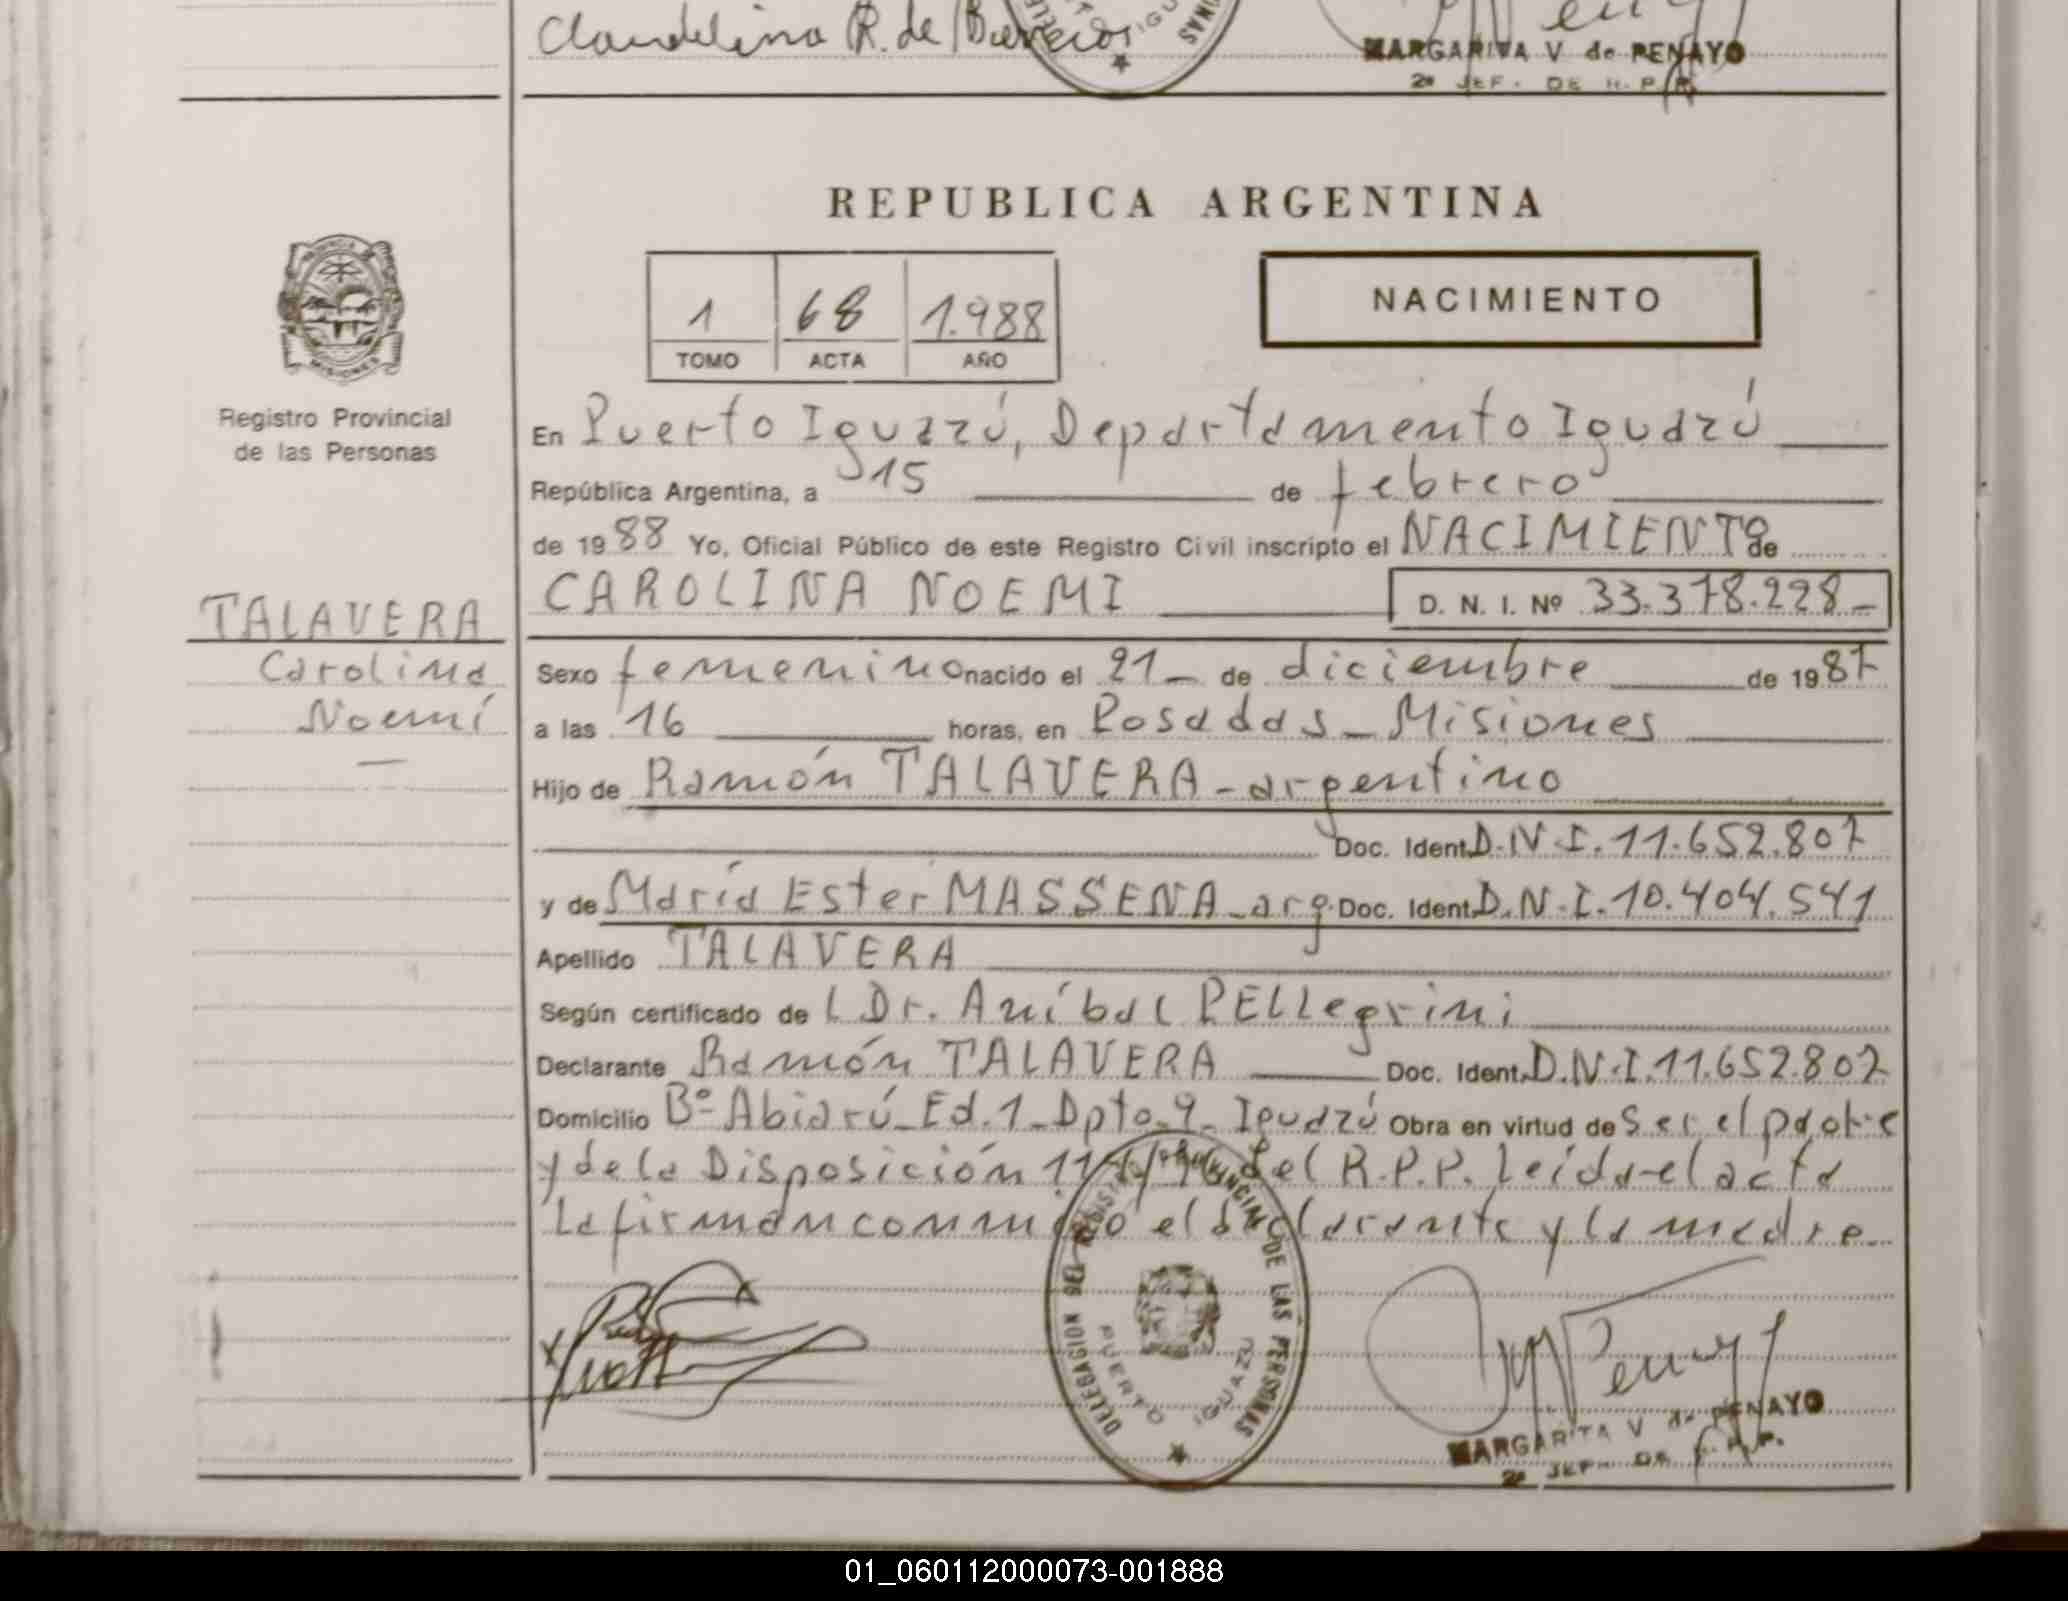 Claudelina R. de
MARGARITA V de PENAYO
2ª JEF. DE R.P.P.
REPUBLICA ARGENTINA
1 68 1.988
TOMO ACTA AÑO
NACIMIENTO
Registro Provincial
de las Personas
En Puerto Iguazú, Departamento Iguazú
República Argentina, a 15 de febrero
de 1988 Yo, Oficial Público de este Registro Civil inscripto el NACIMIENTO de
CAROLINA NOEMI D. N. I. Nº 33.378.228_
TALAVERA
Carolina
Noemí
Sexo femenino nacido el 21_ de diciembre de 1987
a las 16 horas, en Posadas_Misiones
Hijo de Ramón TALAVERA-argentino
Doc. Ident. D.N.I.11.652.807
y de María Ester MASSENA_arg. Doc. Ident. D.N.I.10.404.541
Apellido TALAVERA
Según certificado de l Dr. Aníbal PELLegrini
Declarante Ramón TALAVERA Doc. Ident. D.N.I.11.652.807
Domicilio Bº Abiarú_Ed.1_Dpto.9_Iguazú Obra en virtud de ser el padre
y de la Disposición del R.P.P. Leída el acta
la firman conmigo el declarante y la madre.
DELEGACION DEL REGISTRO PROVINCIAL DE LAS PERSONAS
PUERTO IGUAZU
MARGARITA V de PENAYO
2ª JEF. DE R.P.P.
01_060112000073-001888